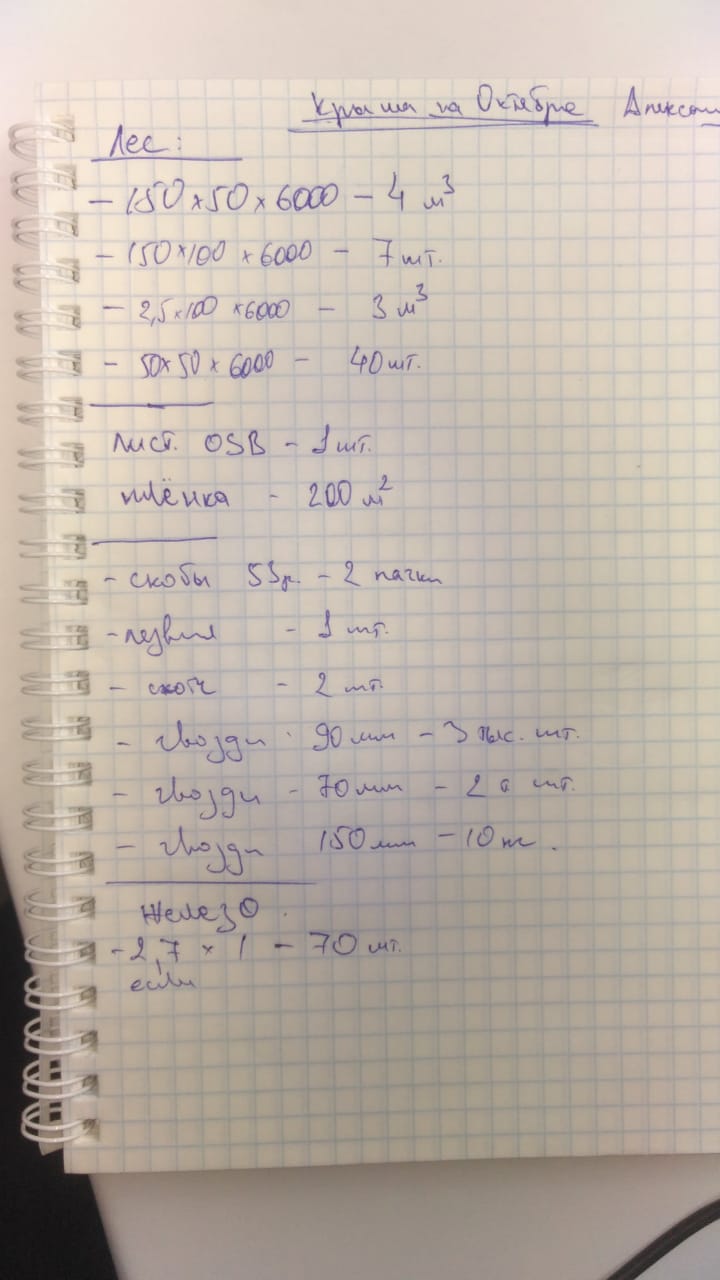 Крыша на Октябре Алексан
Лес:
- 150×50×6000 - 4 м³
- 150×100×6000 - 7 шт.
- 2,5×100×6000 - 3 м³
- 50×50×6000 - 40 шт.
лист. OSB - 1 шт.
плёнка - 200 м²
- скобы 53 - 2 пачки
- лезвия - 1 шт.
- скотч - 2 шт.
- гвозди 90мм - 3 тыс. шт.
- гвозди - 70мм - 2 шт.
- гвозди 150мм - 10 кг.
Железо.
- 2,7 × 1 - 70 шт.
если